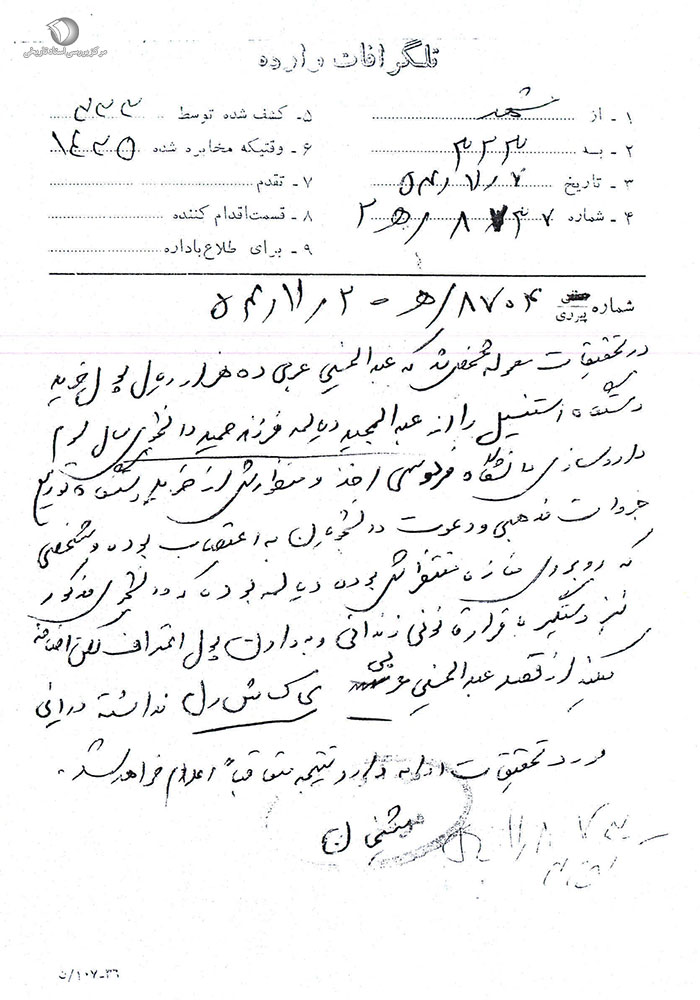 مرکز بررسی اسناد تاریخی
تلگرافات وارده
۱ - از مشهد
۲ - به ۳۳۳
۳ - تاریخ
۴ - شماره
۵ - کشف شده توسط
۶ - وقتیکه مخابره شده ۱۴۳۵
۷ - تقدم
۸ - قسمت اقدام کننده
۹ - برای طلاع باداره
شماره پیروی ۸۷۰۴/ه‍
در تحقیقات معموله مشخص شد که عبدالحسین عربی ده هزار ریال پول خرید
دستگاه استنسیل را از عبدالمجید دیالمه فرزند حمید دانشجوی سال سوم
داروسازی دانشگاه فردوسی اخذ و منظورش از خرید دستگاه توزیع
جزوات مذهبی و دعوت دانشجویان به اعتصاب بوده و شخصی
که روبروی مغازه منتظرش بوده دیالمه بوده که دانشجوی مذکور
نیز دستگیر با قرار قانونی زندانی و به دادن پول اعتراف لکن اضافه
میکند از قصد عبدالحسین عربی ی ک ش ر ل نداشته در این
مورد تحقیقات ادامه دارد نتیجه متعاقباً اعلام خواهد شد.
۱۰۷-۳۶/ث